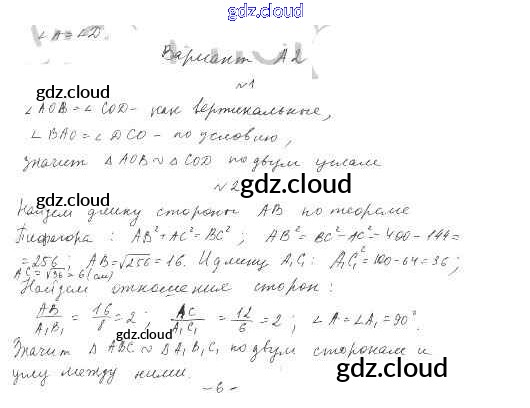 gdz.cloud
∠A = ∠D.
Вариант А2
№1
gdz.cloud gdz.cloud
∠AOB = ∠COD - как вертикальные,
∠BAO = ∠DCO - по условию,
значит △AOB ~ △COD по двум углам
gdz.cloud
№2
gdz.cloud
Найдем длину стороны AB по теореме
Пифагора: AB² + AC² = BC²; AB² = BC² - AC² = 400 - 144 =
= 256; AB = √256 = 16. И длину A₁C₁: A₁C₁² = 100 - 64 = 36;
A₁C₁ = √36 = 6 (см)
gdz.cloud
Найдем отношения сторон:
AB/A₁B₁ = 16/8 = 2; AC/A₁C₁ = 12/6 = 2; ∠A = ∠A₁ = 90°.
gdz.cloud
Значит △ABC ~ △A₁B₁C₁ по двум сторонам и
углу между ними.
gdz.cloud
- 6 -